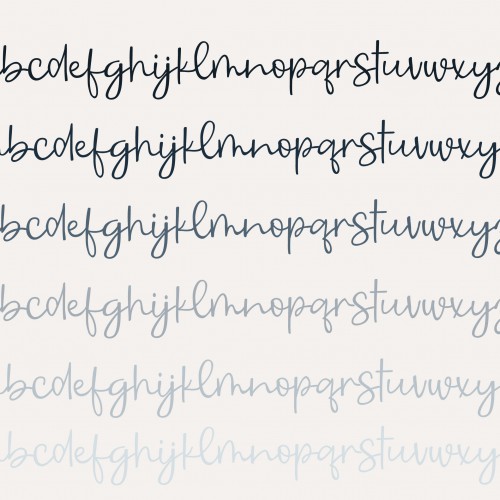 bcdefghijklmnopqrstuvwxyz
bcdefghijklmnopqrstuvwxy
bcdefghijklmnopqrstuvwxyz
bcdefghijklmnopqrstuvwxyz
bcdefghijklmnopqrstuvwxy
bcdefghijklmnopqrstuvwxyz